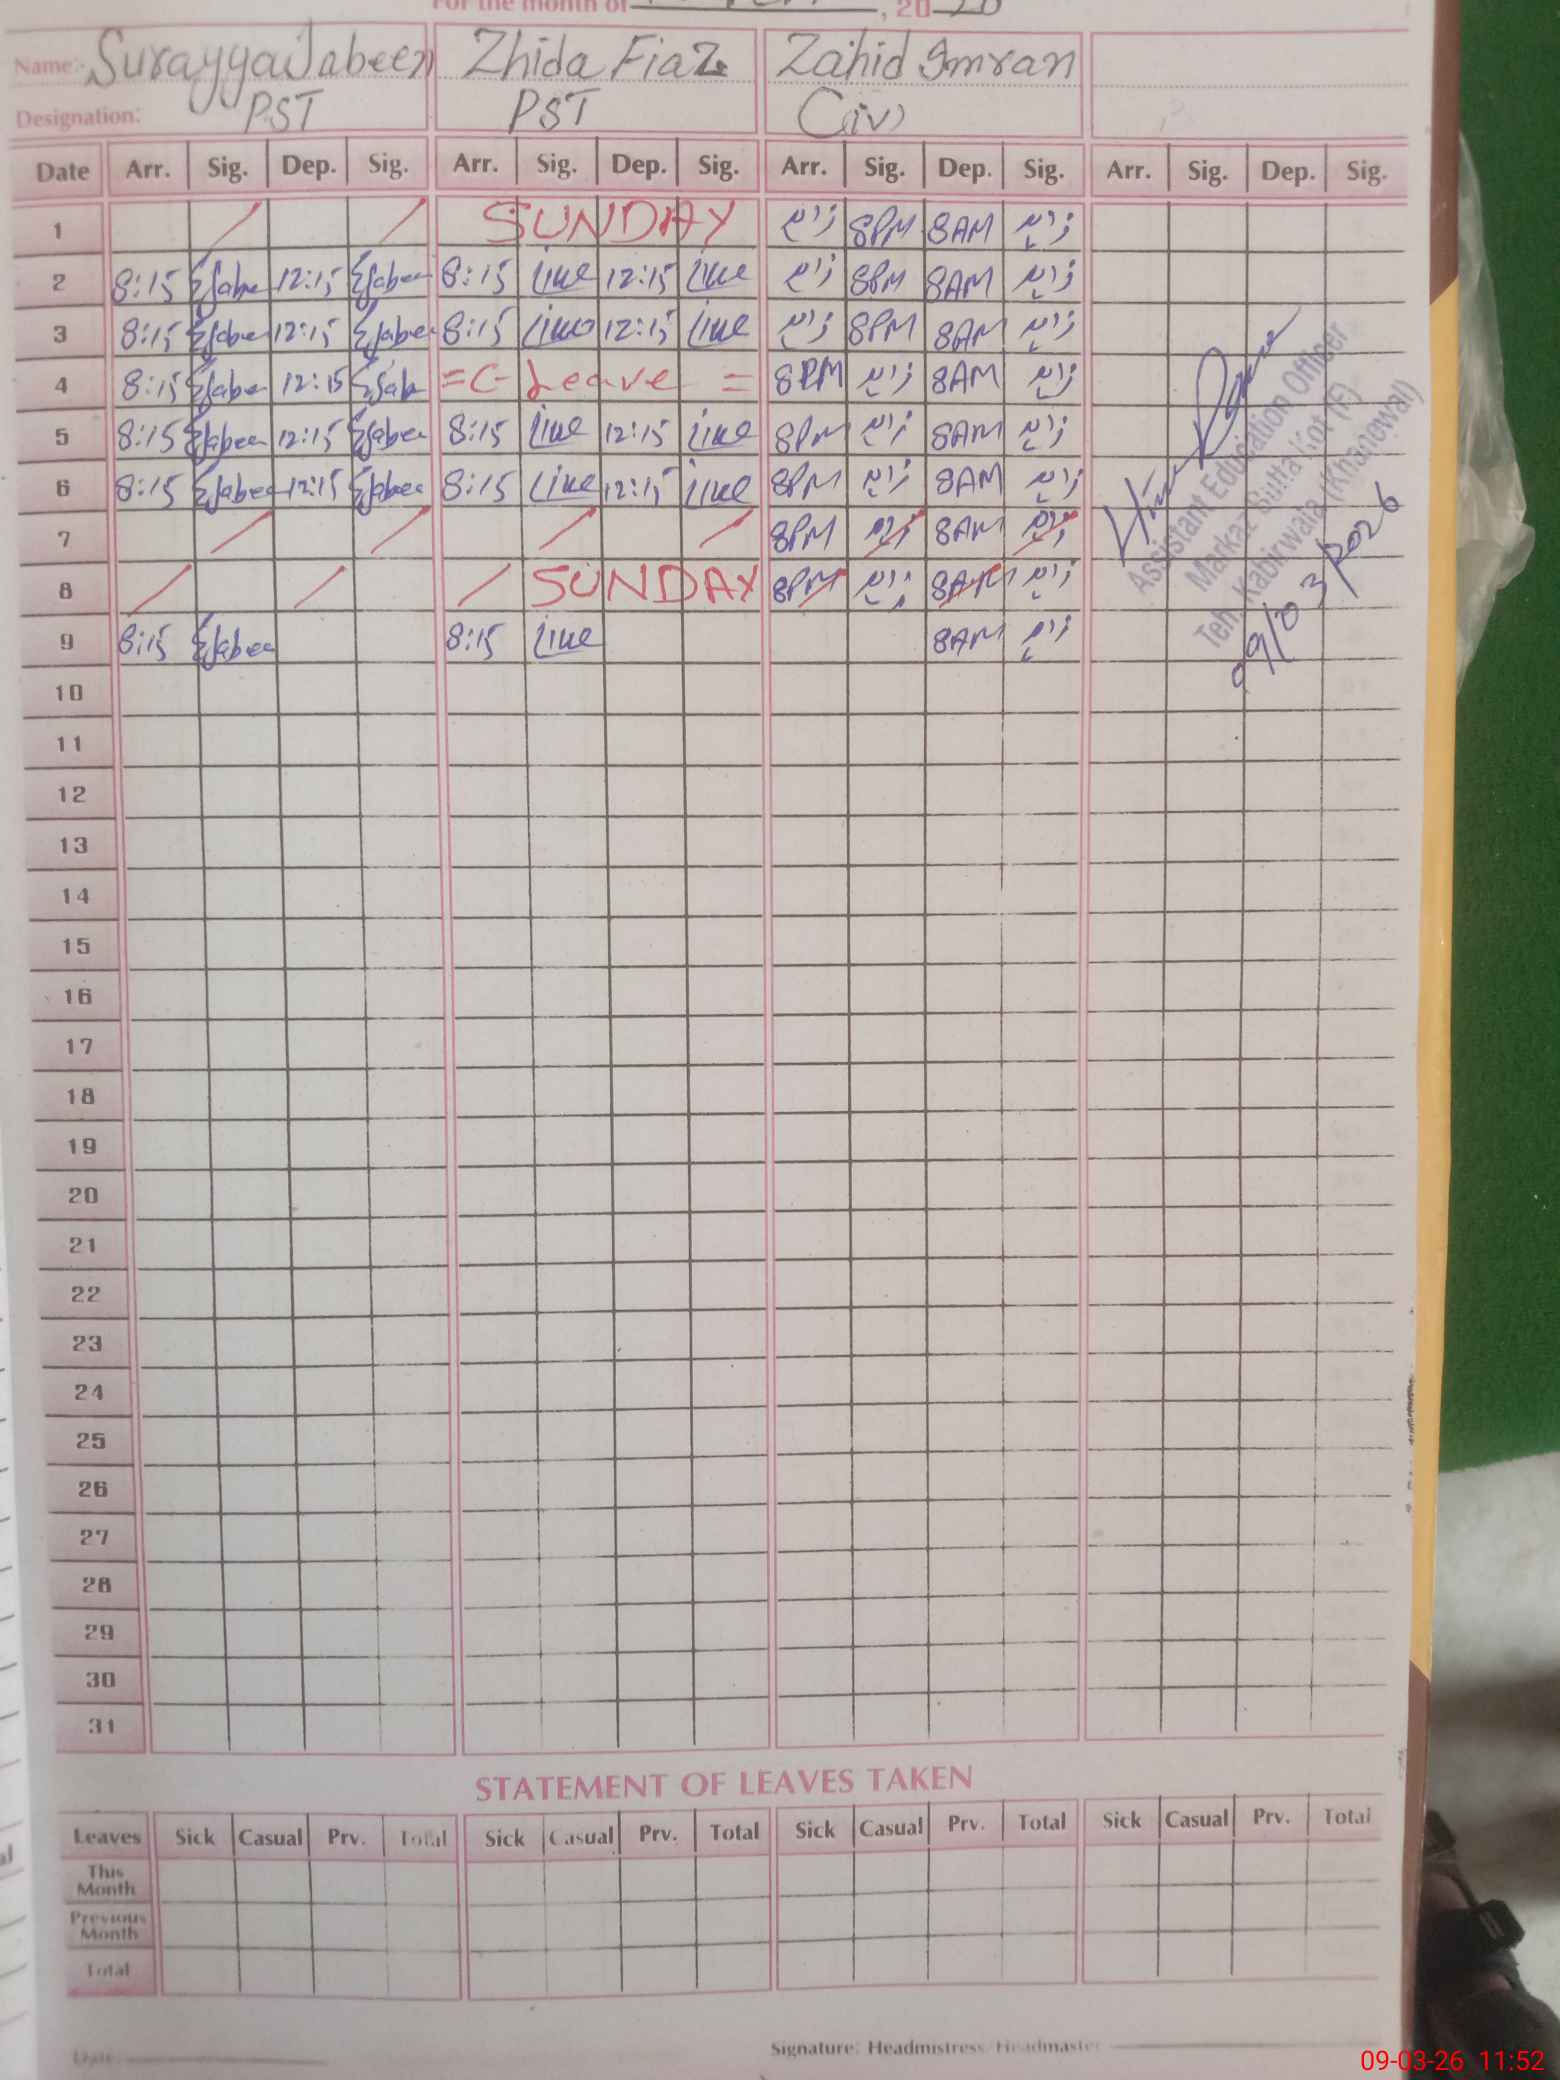 For the month of , 2026
Name: Surayya Jabeen Zhida Fiaz Zahid Imran
Designation: PST PST C(iv)
Date Arr. Sig. Dep. Sig. Arr. Sig. Dep. Sig. Arr. Sig. Dep. Sig. Arr. Sig. Dep. Sig.
1 SUNDAY زاہد 8PM 8AM زاہد
2 8:15 Jabeen 12:15 Jabeen 8:15 12:15 زاہد 8PM 8AM زاہد
3 8:15 Jabeen 12:15 Jabeen 8:15 12:15 زاہد 8PM 8AM زاہد
4 8:15 Jabeen 12:15 = C- Leave = 8PM زاہد 8AM زاہد
5 8:15 Jabeen 12:15 Jabeen 8:15 12:15 8PM زاہد 8AM زاہد
6 8:15 Jabeen 12:15 Jabeen 8:15 12:15 8PM زاہد 8AM زاہد
7 8PM زاہد 8AM زاہد
8 SUNDAY 8PM زاہد 8AM زاہد
9 8:15 Jabeen 8:15 8AM زاہد
Assistant Education Officer
Markaz Kot (F)
Teh. Kabirwala (Khanewal)
09/03/2026
10
11
12
13
14
15
16
17
18
19
20
21
22
23
24
25
26
27
28
29
30
31
STATEMENT OF LEAVES TAKEN
Leaves Sick Casual Prv. Total Sick Casual Prv. Total Sick Casual Prv. Total Sick Casual Prv. Total
This
Month
Previous
Month
Total
Date: Signature: Headmistress/Headmaster
09-03-26 11:52